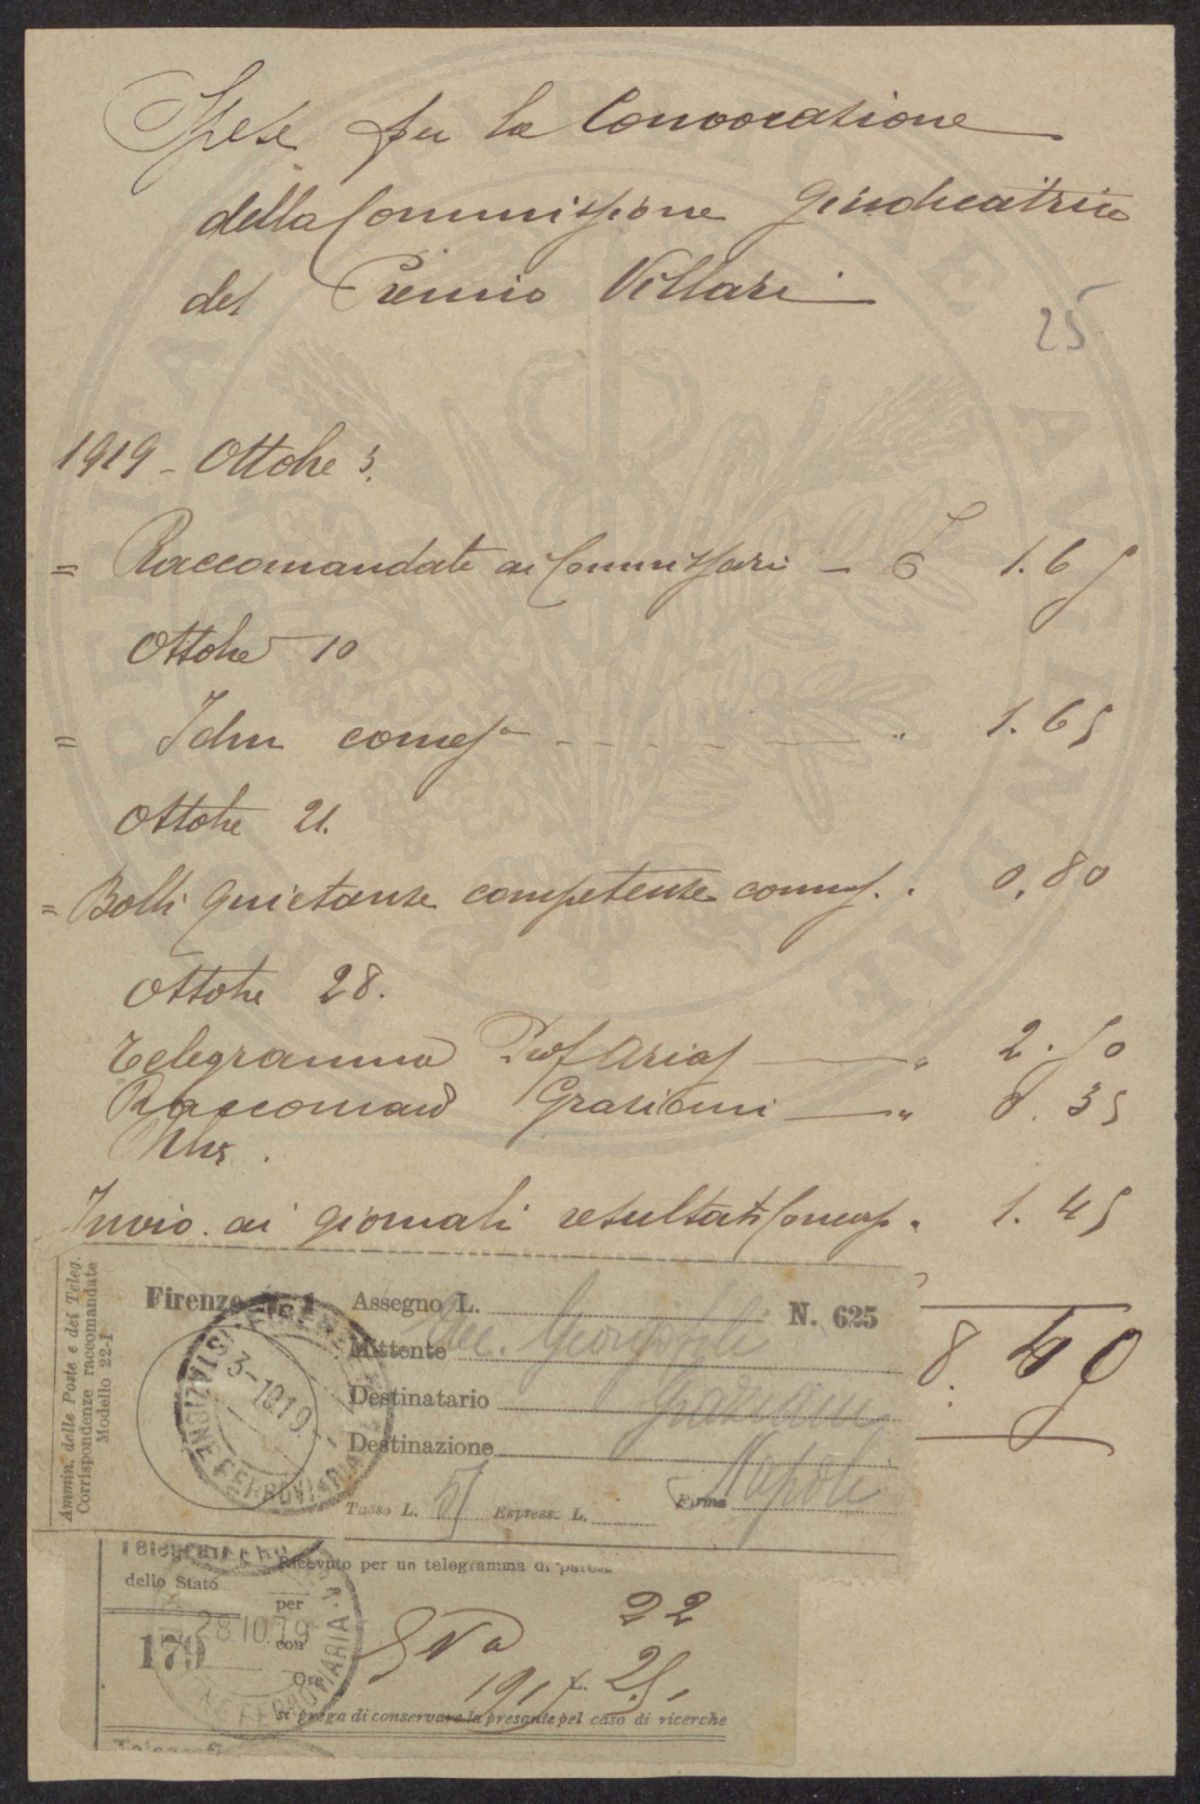 Spese per la Convocazione
della Commissione giudicatrice
del Premio Villari
25
1919 - Ottobre 3.
= Raccomandate ai Commissari - 6 1.65
Ottobre 10
= Idem come s " 1.65
Ottobre 21.
= Bolli quietanze competenze comm. " 0.80
Ottobre 28.
Telegramma Prof Arias " 2.50
Raccomand Graziani " 0.35
Invio ai giornali resultati Concorso " 1.45
8.40
Ammin. delle Poste e dei Teleg.
Corrispondenze raccomandate
Modello 22-I
Firenze
Assegno L.
N. 625
Mittente
Destinatario Graziani
Destinazione Napoli
Tassa L. Espresso L. Firma
3-10 19
FERROVIARIA
Telegrafi
dello Stato
Ricevuto per un telegramma di parole
per 22
con
179
28 10 19
Ore L. 2.5
si prega di conservare la presente pel caso di ricerche
FERROVIARIA